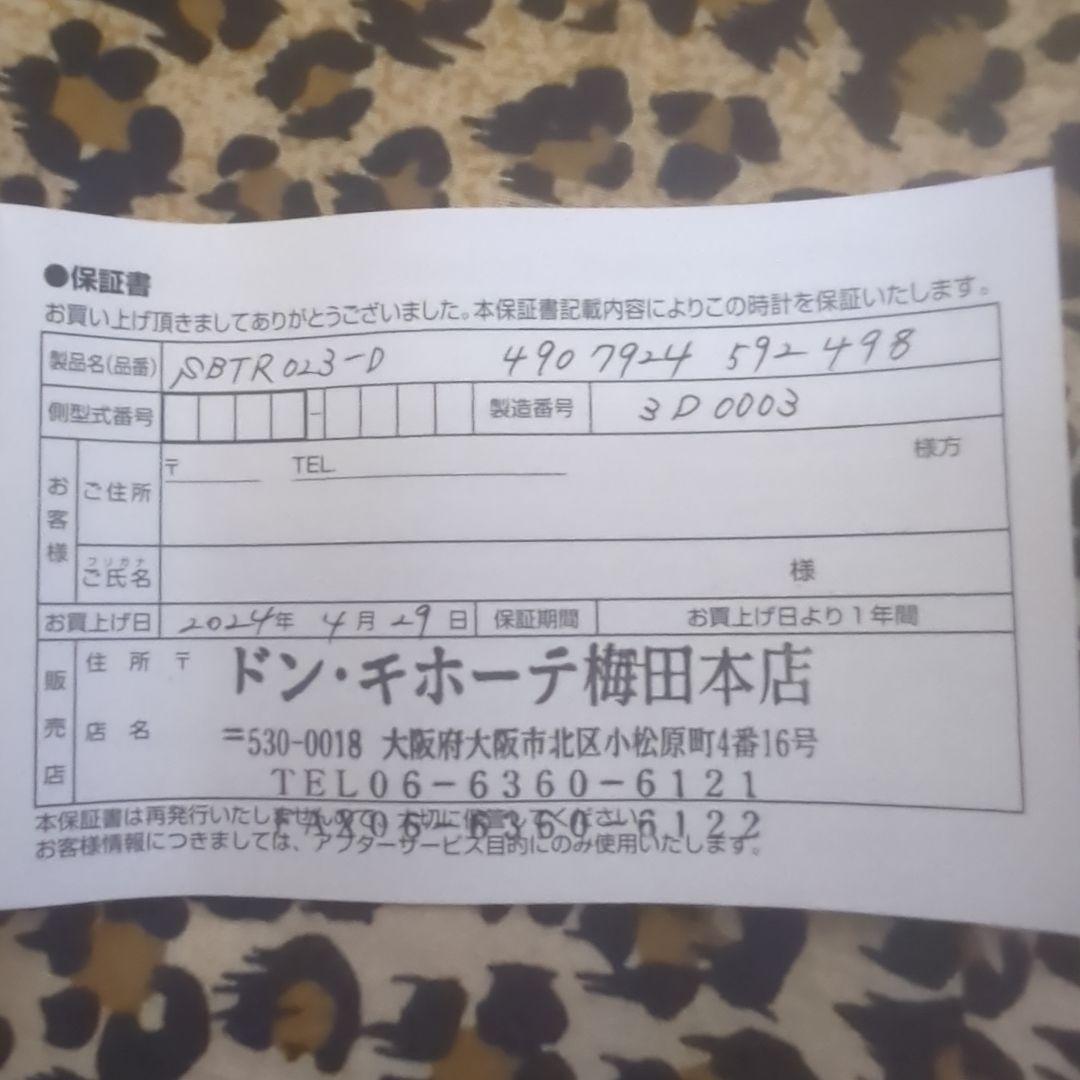 ●保証書
お買い上げ頂きましてありがとうございました。本保証書記載内容によりこの時計を保証いたします。
製品名(品番) SBTR023-D 4907924 592498
側型式番号 - 製造番号 3D0003
お客様 ご住所 〒 TEL 様方
フリガナ
ご氏名 様
お買上げ日 2024年 4月 29日 保証期間 お買上げ日より1年間
販売店 住所 〒 ドン・キホーテ梅田本店
店名 〒530-0018 大阪府大阪市北区小松原町4番16号
TEL06-6360-6121
本保証書は再発行いたしませんので、大切に保管してください。
FAX06-6360-6122
お客様情報につきましては、アフターサービス目的にのみ使用いたします。